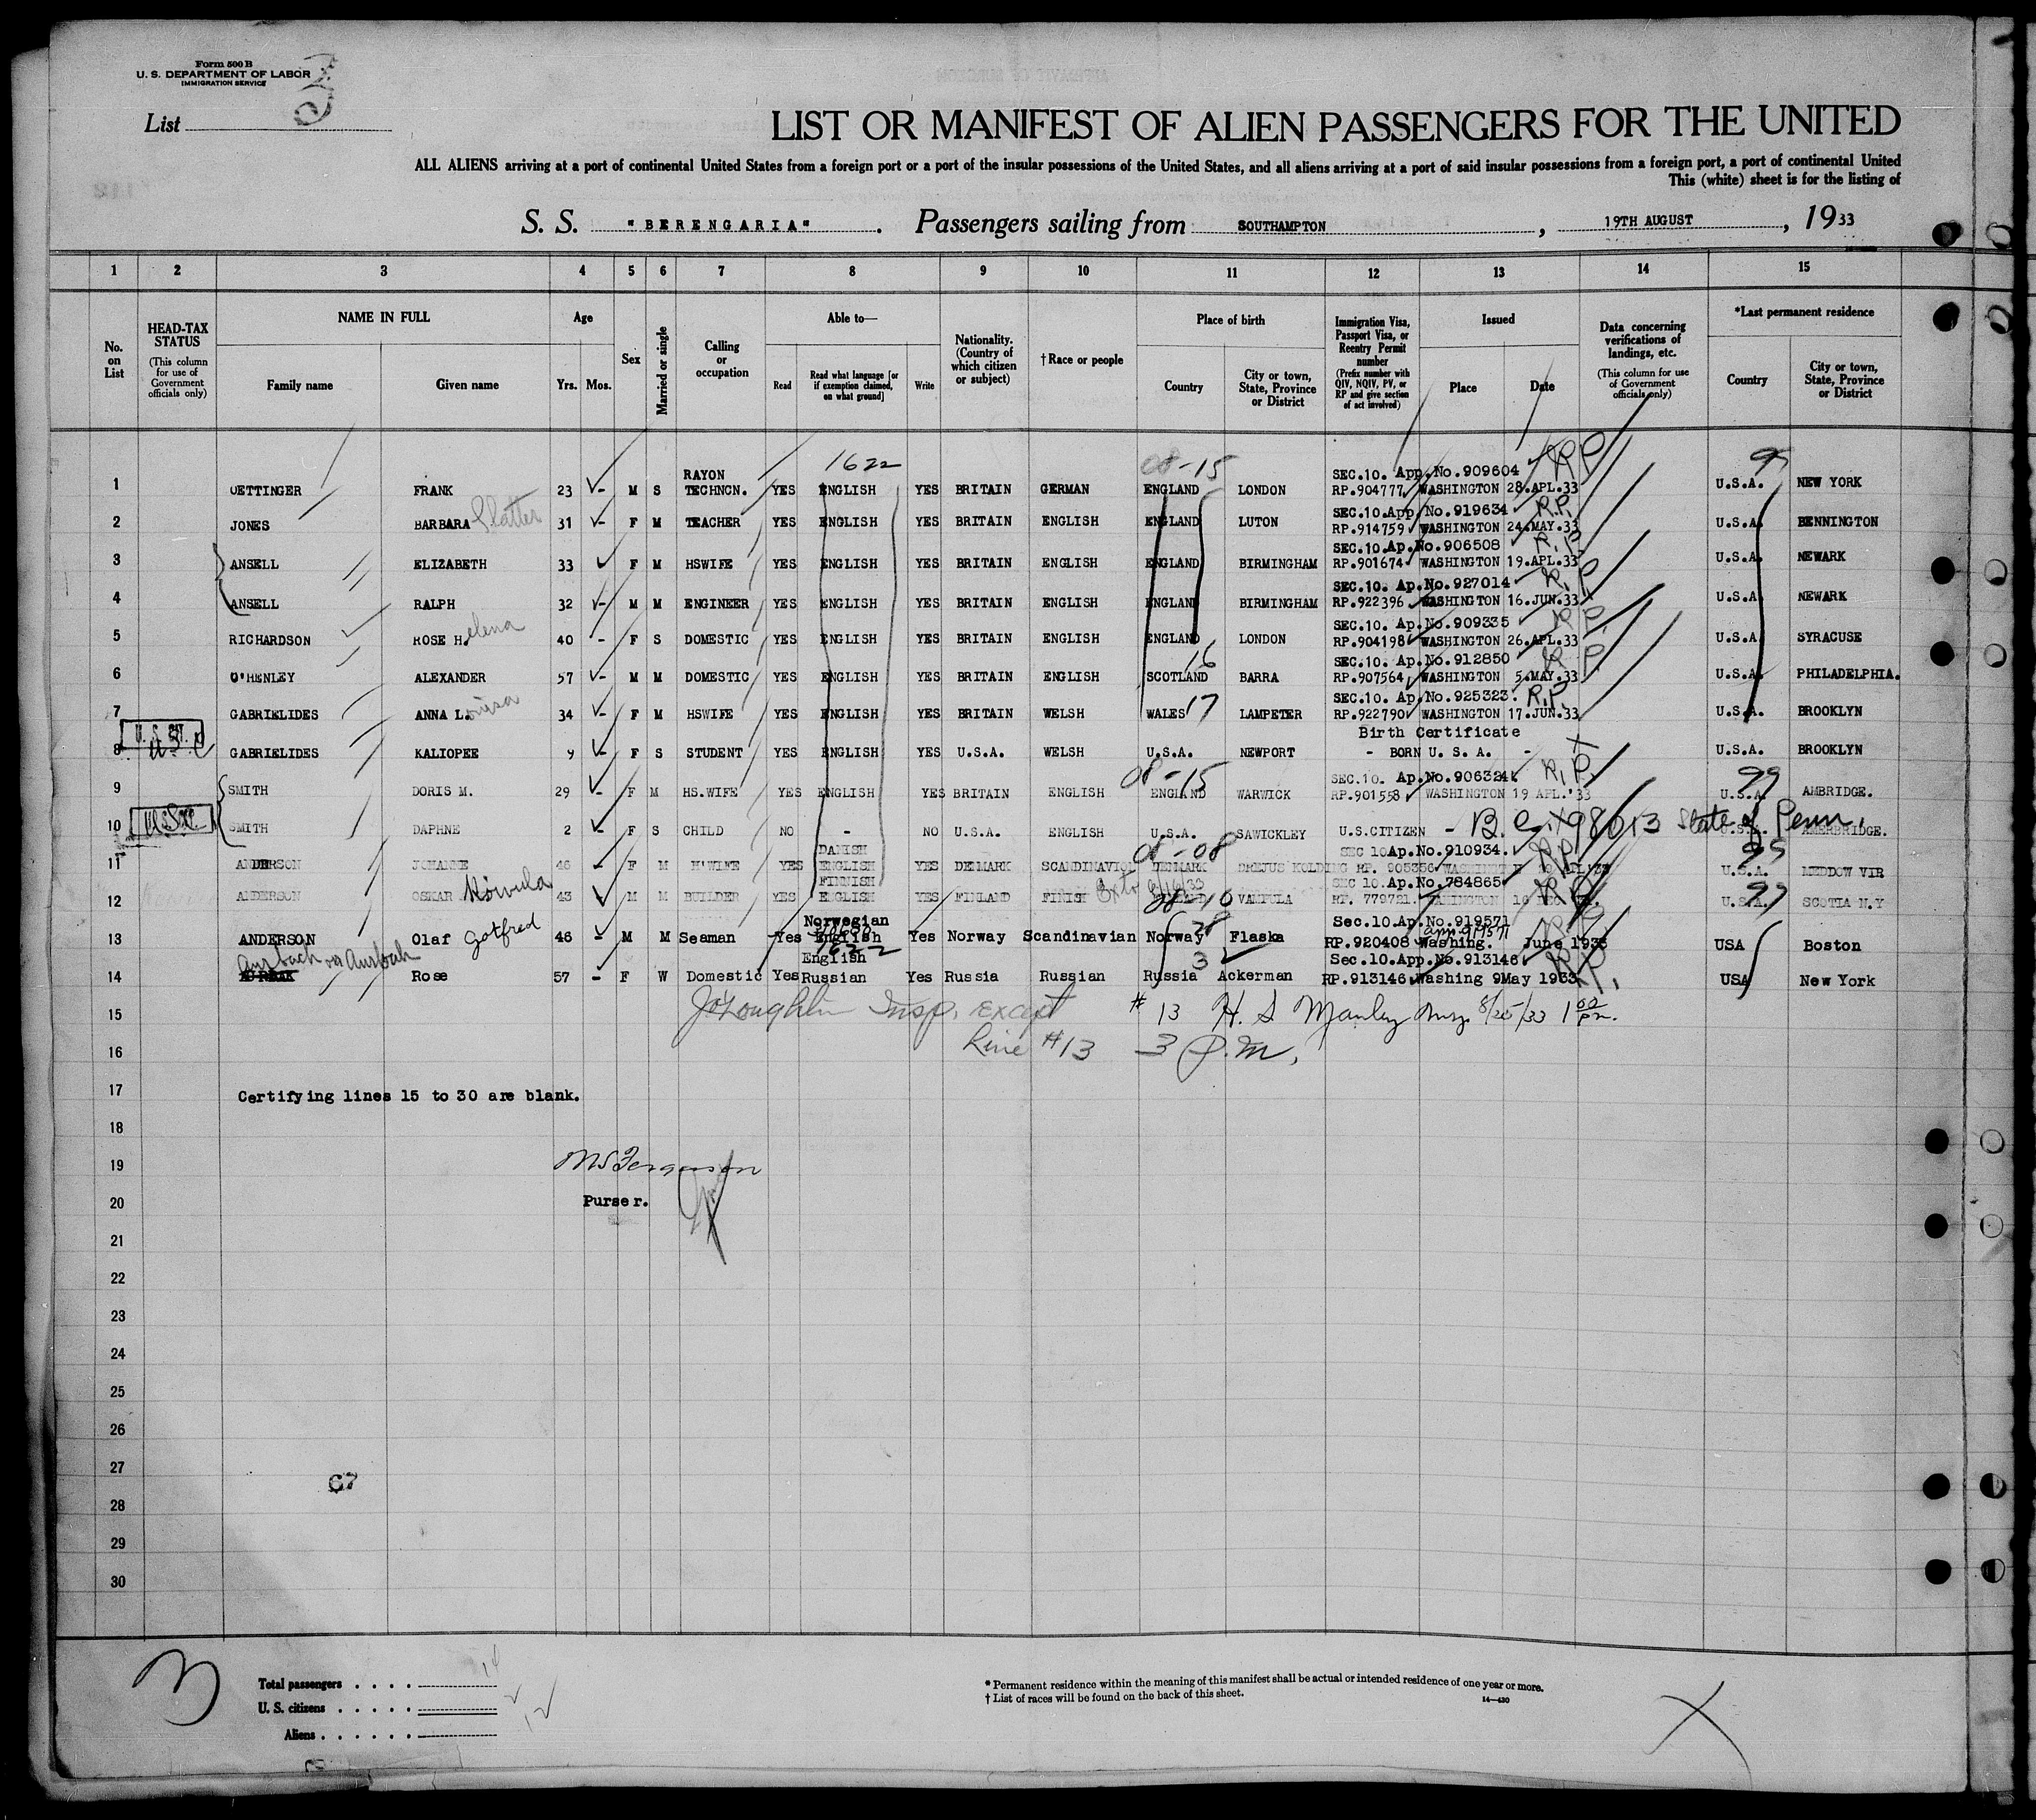 Form 500 B
U. S. DEPARTMENT OF LABOR
IMMIGRATION SERVICE
List
LIST OR MANIFEST OF ALIEN PASSENGERS FOR THE UNITED
ALL ALIENS arriving at a port of continental United States from a foreign port or a port of the insular possessions of the United States, and all aliens arriving at a port of said insular possessions from a foreign port, a port of continental United
This (white) sheet is for the listing of
S. S. "BERENGARIA". Passengers sailing from SOUTHAMPTON, 19TH AUGUST, 1933
1 2 3 4 5 6 7 8 9 10 11 12 13 14 15
No. on List
HEAD-TAX STATUS (This column for use of Government officials only)
NAME IN FULL
Family name Given name
Age
Yrs. Mos.
Sex
Married or single
Calling or occupation
Able to—
Read
Read what language [or if exemption claimed, on what ground]
Write
Nationality. (Country of which citizen or subject)
†Race or people
Place of birth
Country
City or town, State, Province or District
Immigration Visa, Passport Visa, or Reentry Permit number (Prefix number with QIV, NQIV, PV, or RP and give section of act involved)
Issued
Place Date
Data concerning verifications of landings, etc. (This column for use of Government officials only)
*Last permanent residence
Country
City or town, State, Province or District
1622 08-15 99
RAYON SEC.10. App.No.909604 RP
1 OETTINGER FRANK 23 - M S TECHNCN. YES ENGLISH YES BRITAIN GERMAN ENGLAND LONDON RP.904777 WASHINGTON 28.APL.33 U.S.A. NEW YORK
SEC.10.App.No.919634 R.P.
2 JONES BARBARA Slatter 31 - F M TEACHER YES ENGLISH YES BRITAIN ENGLISH ENGLAND LUTON RP.914759 WASHINGTON 24.MAY.33 U.S.A. BENNINGTON
SEC.10.Ap.No.906508 R.P.
3 ANSELL ELIZABETH 33 F M HSWIFE YES ENGLISH YES BRITAIN ENGLISH ENGLAND BIRMINGHAM RP.901674 WASHINGTON 19.APL.33 U.S.A. NEWARK
SEC.10. Ap.No.927014 R.P.
4 ANSELL RALPH 32 - M M ENGINEER YES ENGLISH YES BRITAIN ENGLISH ENGLAND BIRMINGHAM RP.922396 WASHINGTON 16.JUN.33 U.S.A. NEWARK
SEC.10. Ap.No.909335 R.P.
5 RICHARDSON ROSE H.elena 40 - F S DOMESTIC YES ENGLISH YES BRITAIN ENGLISH ENGLAND LONDON RP.904198 WASHINGTON 26.APL.33 U.S.A. SYRACUSE
16 SEC.10. Ap.No.912850 R.P.
6 O'HENLEY ALEXANDER 57 - M M DOMESTIC YES ENGLISH YES BRITAIN ENGLISH SCOTLAND BARRA RP.907564 WASHINGTON 5.MAY.33 U.S.A. PHILADELPHIA.
SEC.10. Ap.No.925323. R.P.
7 GABRIELIDES ANNA L.ouisa 34 - F M HSWIFE YES ENGLISH YES BRITAIN WELSH WALES 17 LAMPETER RP.922790 WASHINGTON 17.JUN.33 U.S.A. BROOKLYN
Birth Certificate
8 GABRIELIDES KALIOPEE 9 - F S STUDENT YES ENGLISH YES U.S.A. WELSH U.S.A. NEWPORT - BORN U. S. A. - X U.S.A. BROOKLYN
08-15 SEC.10. Ap.No.906324. R.P. 99
9 SMITH DORIS M. 29 - F M HS.WIFE YES ENGLISH YES BRITAIN ENGLISH ENGLAND WARWICK RP.901558 WASHINGTON 19 APL.'33 U.S.A. AMBRIDGE.
10 USC SMITH DAPHNE 2 - F S CHILD NO - NO U.S.A. ENGLISH U.S.A. SAWICKLEY U.S.CITIZEN - B.C. X98013 State of Penn. U.S.A. AMERBRIDGE.
DANISH 08-08 SEC 10Ap.No.910934. RP 99
11 ANDERSON JOHANNE 46 - F M H'WIFE YES ENGLISH YES DENMARK SCANDINAVIAN DENMARK DREJUS KOLDING RP. 905356 WASHINGTON U.S.A. MEDDOW VIR
FINNISH SEC 10.Ap.No.784865 RP 99
12 ANDERSON OSKAR Koivula 43 M M BUILDER YES ENGLISH YES FINLAND FINISH VAMPULA RP. 779721. WASHINGTON 10 DEC U.S.A. SCOTIA N.Y
Norwegian 28 Sec.10.Ap.No.919571
13 ANDERSON Olaf Gotfred 46 - M M Seaman Yes English Yes Norway Scandinavian Norway Flaska RP.920408 Washing. June 1933 USA Boston
1622
Ausbach or Ausbah English 3 Sec.10.App.No.913146 R.P.
14 Rose 57 - F W Domestic Yes Russian Yes Russia Russian Russia Ackerman RP.913146 Washing 9May 1933 USA New York
15 J O'Loughlin Insp. except #13 H. S Manley Insp. 8/25/33 1 00 pm.
16 Line #13 3 P.M.
17 Certifying lines 15 to 30 are blank.
18
19 Ferguson
20 Purser.
21
22
23
24
25
26
27
67
28
29
30
3
Total passengers . . . . 14
U. S. citizens . . . . . 2
Aliens . . . . . 12
* Permanent residence within the meaning of this manifest shall be actual or intended residence of one year or more.
† List of races will be found on the back of this sheet. 14—430
X